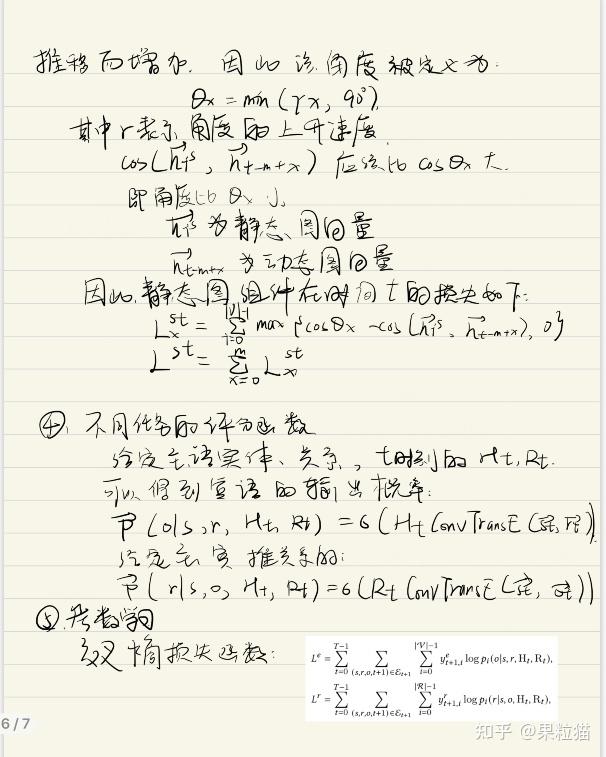 推移而增加. 因此 该角度被定义为:
θx = min (γx, 90°).
其中 r 表示 角度的上升速度.
cos(h_i^s, h_{t-m+x}) 应该比 cosθx 大.
即角度比 θx 小.
h_i^s 为静态图向量
h_{t-m+x} 为动态图向量
因此 静态图组件在时间 t 的损失如下:
L_x^{st} = Σ_{i=0}^{|V|-1} max {cosθx - cos(h_i^s, h_{t-m+x}), 0}
L^{st} = Σ_{x=0}^{m} L_x^{st}
④. 不同任务的评分函数
给定主语实体、关系, t时刻的 Ht, Rt.
可以得到宾语的输出概率:
P (o|s,r, Ht, Rt) = 6 (Ht ConvTransE (st, rt))
给定主 宾 推关系的:
P (r|s,o, Ht, Rt) = 6 (Rt ConvTransE (st, ot))
⑤. 参数学习
交叉熵损失函数:
L^e = Σ_{t=0}^{T-1} Σ_{(s,r,o,t+1)∈ℰ_{t+1}} Σ_{i=0}^{|V|-1} y_{t+1,i}^e log p_i(o|s, r, H_t, R_t),
L^r = Σ_{t=0}^{T-1} Σ_{(s,r,o,t+1)∈ℰ_{t+1}} Σ_{i=0}^{|R|-1} y_{t+1,i}^r log p_i(r|s, o, H_t, R_t),
6 / 7
知乎 @果粒猫